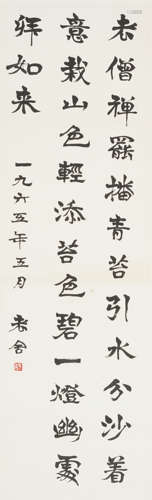 老僧禪罷播青苔引水分沙着
意栽山色輕添苔色碧一燈幽處
拜如来
一九六五年五月 老舍